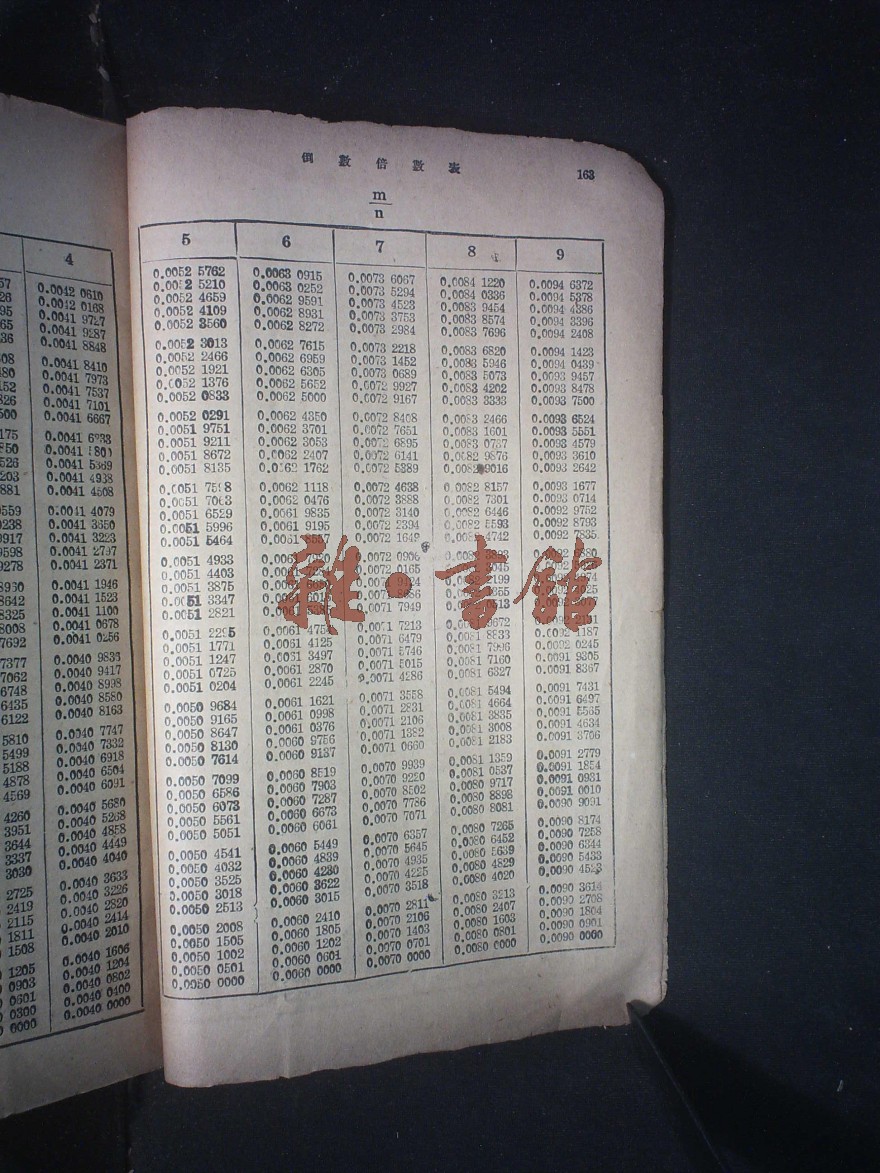 4
57 0.0042 0610
26 0.0042 0168
95 0.0041 9727
65 0.0041 9287
36 0.0041 8848
08 0.0041 8410
80 0.0041 7973
52 0.0041 7537
26 0.0041 7101
00 0.0041 6667
175 0.0041
850 0.0041
526 0.0041 5369
203 0.0041 4938
881 0.0041 4508
559 0.0041 4079
0238 0.0041 3650
9917 0.0041 3223
9598 0.0041 2797
9278 0.0041 2371
8960 0.0041 1946
8642 0.0041 1523
8325 0.0041 1100
8008 0.0041 0678
7692 0.0041 0256
7377 0.0040 9836
7062 0.0040 9417
6748 0.0040 8998
6435 0.0040 8580
6122 0.0040 8163
5810 0.0040 7747
5499 0.0040 7332
5188 0.0040 6918
4878 0.0040 6504
4569 0.0040 6091
4260 0.0040 5680
3951 0.0040 5268
3644 0.0040 4858
3337 0.0040 4449
3030 0.0040 4040
2725 0.0040 3633
2419 0.0040 3226
2115 0.0040 2820
1811 0.0040 2414
1508 0.0040 2010
1205 0.0040 1606
0903 0.0040 1204
0601 0.0040 0802
0300 0.0040 0400
0000 0.0040 0000
倒數倍數表 163
m
n
5 6 7 8 9
0.0052 5762 0.0063 0915 0.0073 6067 0.0084 1220 0.0094 6372
0.0052 5210 0.0063 0252 0.0073 5294 0.0084 0336 0.0094 5378
0.0052 4659 0.0062 9591 0.0073 4523 0.0083 9454 0.0094 4386
0.0052 4109 0.0062 8931 0.0073 3753 0.0083 8574 0.0094 3396
0.0052 3560 0.0062 8272 0.0073 2984 0.0083 7696 0.0094 2408
0.0052 3013 0.0062 7615 0.0073 2218 0.0083 6820 0.0094 1423
0.0052 2466 0.0062 6959 0.0073 1452 0.0083 5946 0.0094 0439
0.0052 1921 0.0062 6305 0.0073 0689 0.0083 5073 0.0093 9457
0.0052 1376 0.0062 5652 0.0072 9927 0.0083 4202 0.0093 8478
0.0052 0833 0.0062 5000 0.0072 9167 0.0083 3333 0.0093 7500
0.0052 0291 0.0062 4350 0.0072 8408 0.0083 2466 0.0093 6524
0.0051 9751 0.0062 3701 0.0072 7651 0.0083 1601 0.0093 5551
0.0051 9211 0.0062 3053 0.0072 6895 0.0083 0737 0.0093 4579
0.0051 8672 0.0062 2407 0.0072 6141 0.0082 9876 0.0093 3610
0.0051 8135 0.0062 1762 0.0072 5389 0.0082 9016 0.0093 2642
0.0051 7598 0.0062 1118 0.0072 4638 0.0082 8157 0.0093 1677
0.0051 7063 0.0062 0476 0.0072 3888 0.0082 7301 0.0093 0714
0.0051 6529 0.0061 9835 0.0072 3140 0.0082 6446 0.0092 9752
0.0051 5996 0.0061 9195 0.0072 2394 0.0082 5593 0.0092 8793
0.0051 5464 0.0072 1649 0.0082 4742 0.0092 7835
0.0051 4933 0.0072 0906
0.0051 4403 0.0072 0165
0.0051 3875
0.0051 3347
0.0051 2821 0.0071 7949
0.0051 2295 0.0071 7213
0.0051 1771 0.0061 4125 0.0071 6479 0.0081 8833 0.0092 1187
0.0051 1247 0.0061 3497 0.0071 5746 0.0081 7996 0.0092 0245
0.0051 0725 0.0061 2870 0.0071 5015 0.0081 7160 0.0091 9305
0.0051 0204 0.0061 2245 0.0071 4286 0.0081 6327 0.0091 8367
0.0050 9684 0.0061 1621 0.0071 3558 0.0081 5494 0.0091 7431
0.0050 9165 0.0061 0998 0.0071 2831 0.0081 4664 0.0091 6497
0.0050 8647 0.0061 0376 0.0071 2106 0.0081 3835 0.0091 5565
0.0050 8130 0.0060 9756 0.0071 1382 0.0081 3008 0.0091 4634
0.0050 7614 0.0060 9137 0.0071 0660 0.0081 2183 0.0091 3706
0.0050 7099 0.0060 8519 0.0070 9939 0.0081 1359 0.0091 2779
0.0050 6586 0.0060 7903 0.0070 9220 0.0081 0537 0.0091 1854
0.0050 6073 0.0060 7287 0.0070 8502 0.0080 9717 0.0091 0931
0.0050 5561 0.0060 6673 0.0070 7786 0.0080 8898 0.0091 0010
0.0050 5051 0.0060 6061 0.0070 7071 0.0080 8081 0.0090 9091
0.0050 4541 0.0060 5449 0.0070 6357 0.0080 7265 0.0090 8174
0.0050 4032 0.0060 4839 0.0070 5645 0.0080 6452 0.0090 7258
0.0050 3525 0.0060 4230 0.0070 4935 0.0080 5639 0.0090 6344
0.0050 3018 0.0060 3622 0.0070 4225 0.0080 4829 0.0090 5433
0.0050 2513 0.0060 3015 0.0070 3518 0.0080 4020 0.0090 4523
0.0050 2008 0.0060 2410 0.0070 2811 0.0080 3213 0.0090 3614
0.0050 1505 0.0060 1805 0.0070 2106 0.0080 2407 0.0090 2708
0.0050 1002 0.0060 1202 0.0070 1403 0.0080 1603 0.0090 1804
0.0050 0501 0.0060 0601 0.0070 0701 0.0080 0801 0.0090 0901
0.0050 0000 0.0060 0000 0.0070 0000 0.0080 0000 0.0090 0000
雜·書館